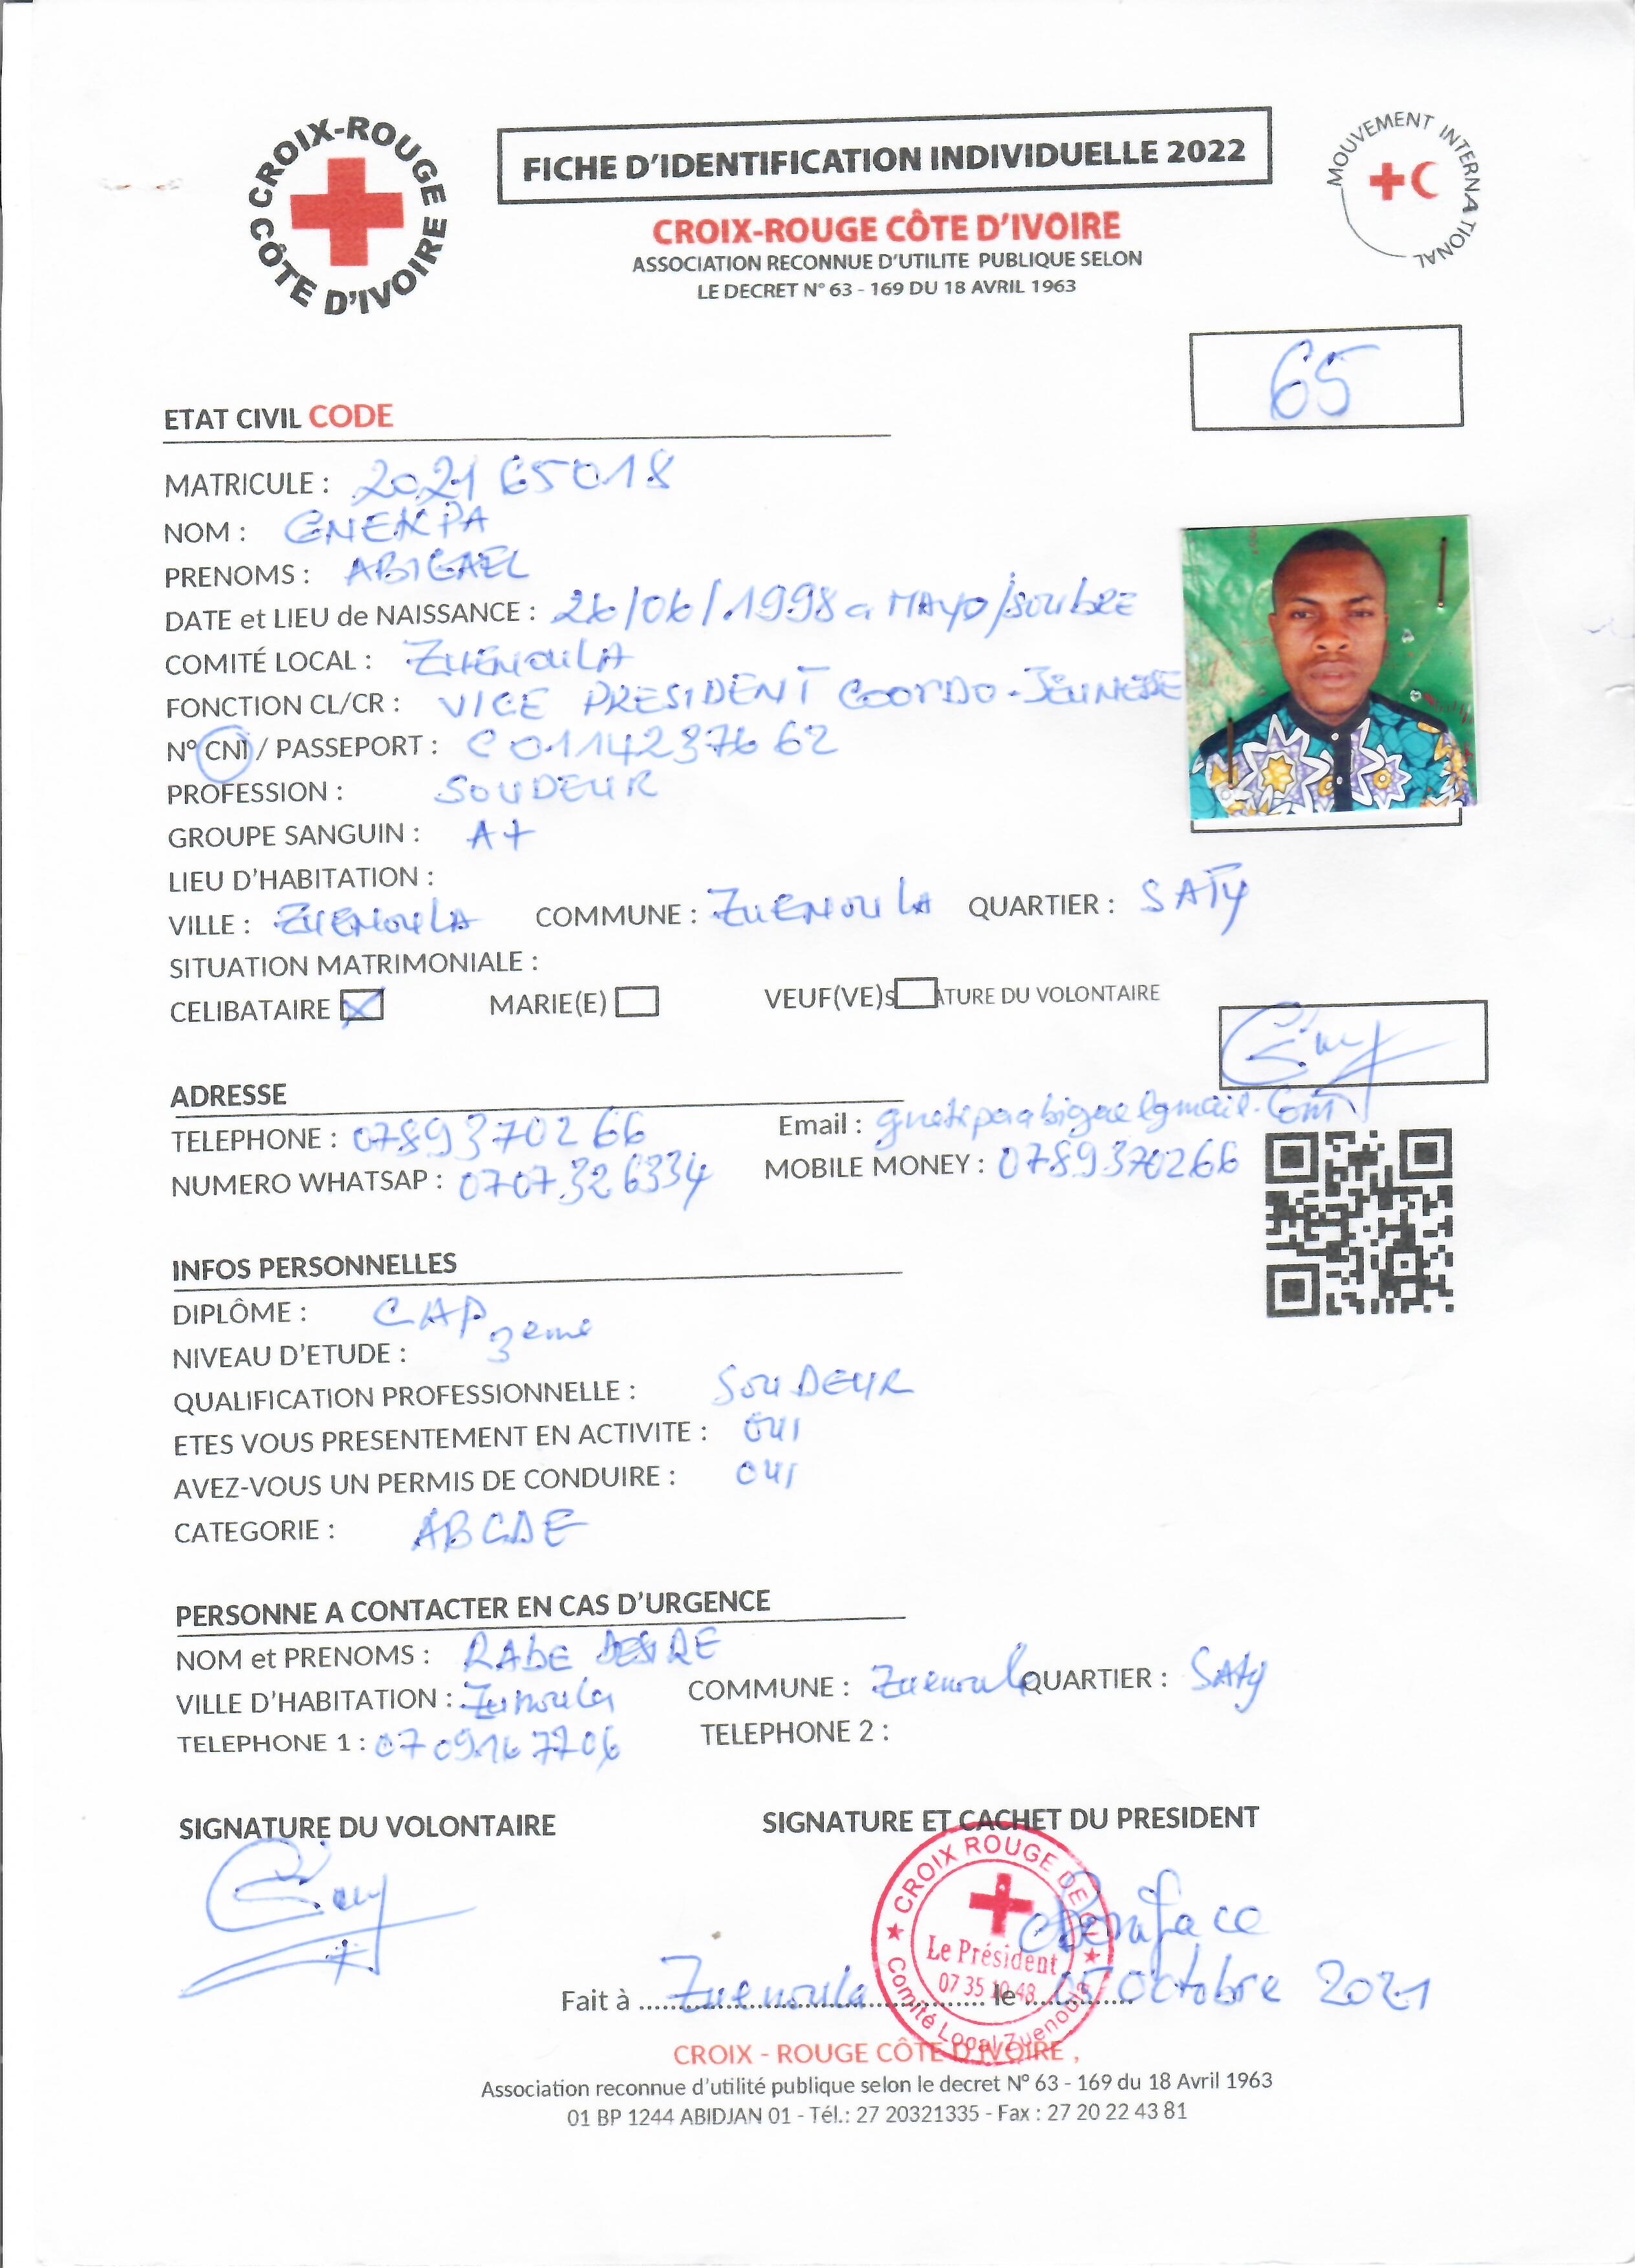 CROIX-ROUGE CÔTE D'IVOIRE
FICHE D'IDENTIFICATION INDIVIDUELLE 2022
MOUVEMENT INTERNATIONAL
CROIX-ROUGE CÔTE D'IVOIRE
ASSOCIATION RECONNUE D'UTILITE PUBLIQUE SELON
LE DECRET N° 63 - 169 DU 18 AVRIL 1963
65
ETAT CIVIL CODE
MATRICULE : 2021 65018
NOM : GNEKPA
PRENOMS : ABIGAEL
DATE et LIEU de NAISSANCE : 26/06/1998 a MAYO/SOUbRE
COMITÉ LOCAL : ZUENOULA
FONCTION CL/CR : VICE PRESIDENT COORDO-JEUNESSE
N° CNI / PASSEPORT : C 0114237662
PROFESSION : SOUDEUR
GROUPE SANGUIN : A+
LIEU D'HABITATION :
VILLE : ZUENOULA COMMUNE : ZUENOULA QUARTIER : SATY
SITUATION MATRIMONIALE :
CELIBATAIRE MARIE(E) VEUF(VE)S ATURE DU VOLONTAIRE
ADRESSE
TELEPHONE : 0789370266 Email : gnekpaabigaelgmail.Com
NUMERO WHATSAP : 0707326334 MOBILE MONEY : 0789370266
INFOS PERSONNELLES
DIPLÔME : CAP
NIVEAU D'ETUDE : 3eme
QUALIFICATION PROFESSIONNELLE : SOUDEUR
ETES VOUS PRESENTEMENT EN ACTIVITE : OUI
AVEZ-VOUS UN PERMIS DE CONDUIRE : OUI
CATEGORIE : ABCDE
PERSONNE A CONTACTER EN CAS D'URGENCE
NOM et PRENOMS : RAbE DESIRE
VILLE D'HABITATION : Zunoula COMMUNE : Zuenoula QUARTIER : SAty
TELEPHONE 1 : 0709167706 TELEPHONE 2 :
SIGNATURE DU VOLONTAIRE SIGNATURE ET CACHET DU PRESIDENT
CROIX ROUGE DE CI
Boniface
Le Président
07 35 10 48
Comité Local Zuenoula
Fait à Zuenoula le 05 Octobre 2021
CROIX - ROUGE CÔTE D'IVOIRE ,
Association reconnue d'utilité publique selon le decret N° 63 - 169 du 18 Avril 1963
01 BP 1244 ABIDJAN 01 - Tél.: 27 20321335 - Fax : 27 20 22 43 81